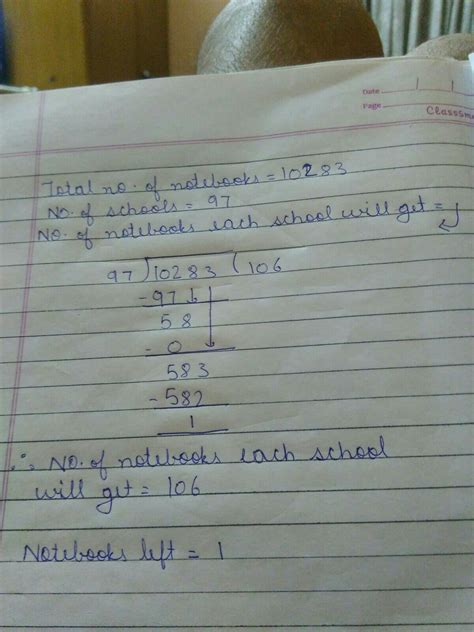 Date
Page
Classm
Total no. of notebooks = 10283
No. of schools = 97
No. of notebooks each school will get =
97)10283(106
-97
58
-0
583
-582
1
∴ No. of notebooks each school
will get = 106
Notebooks left = 1